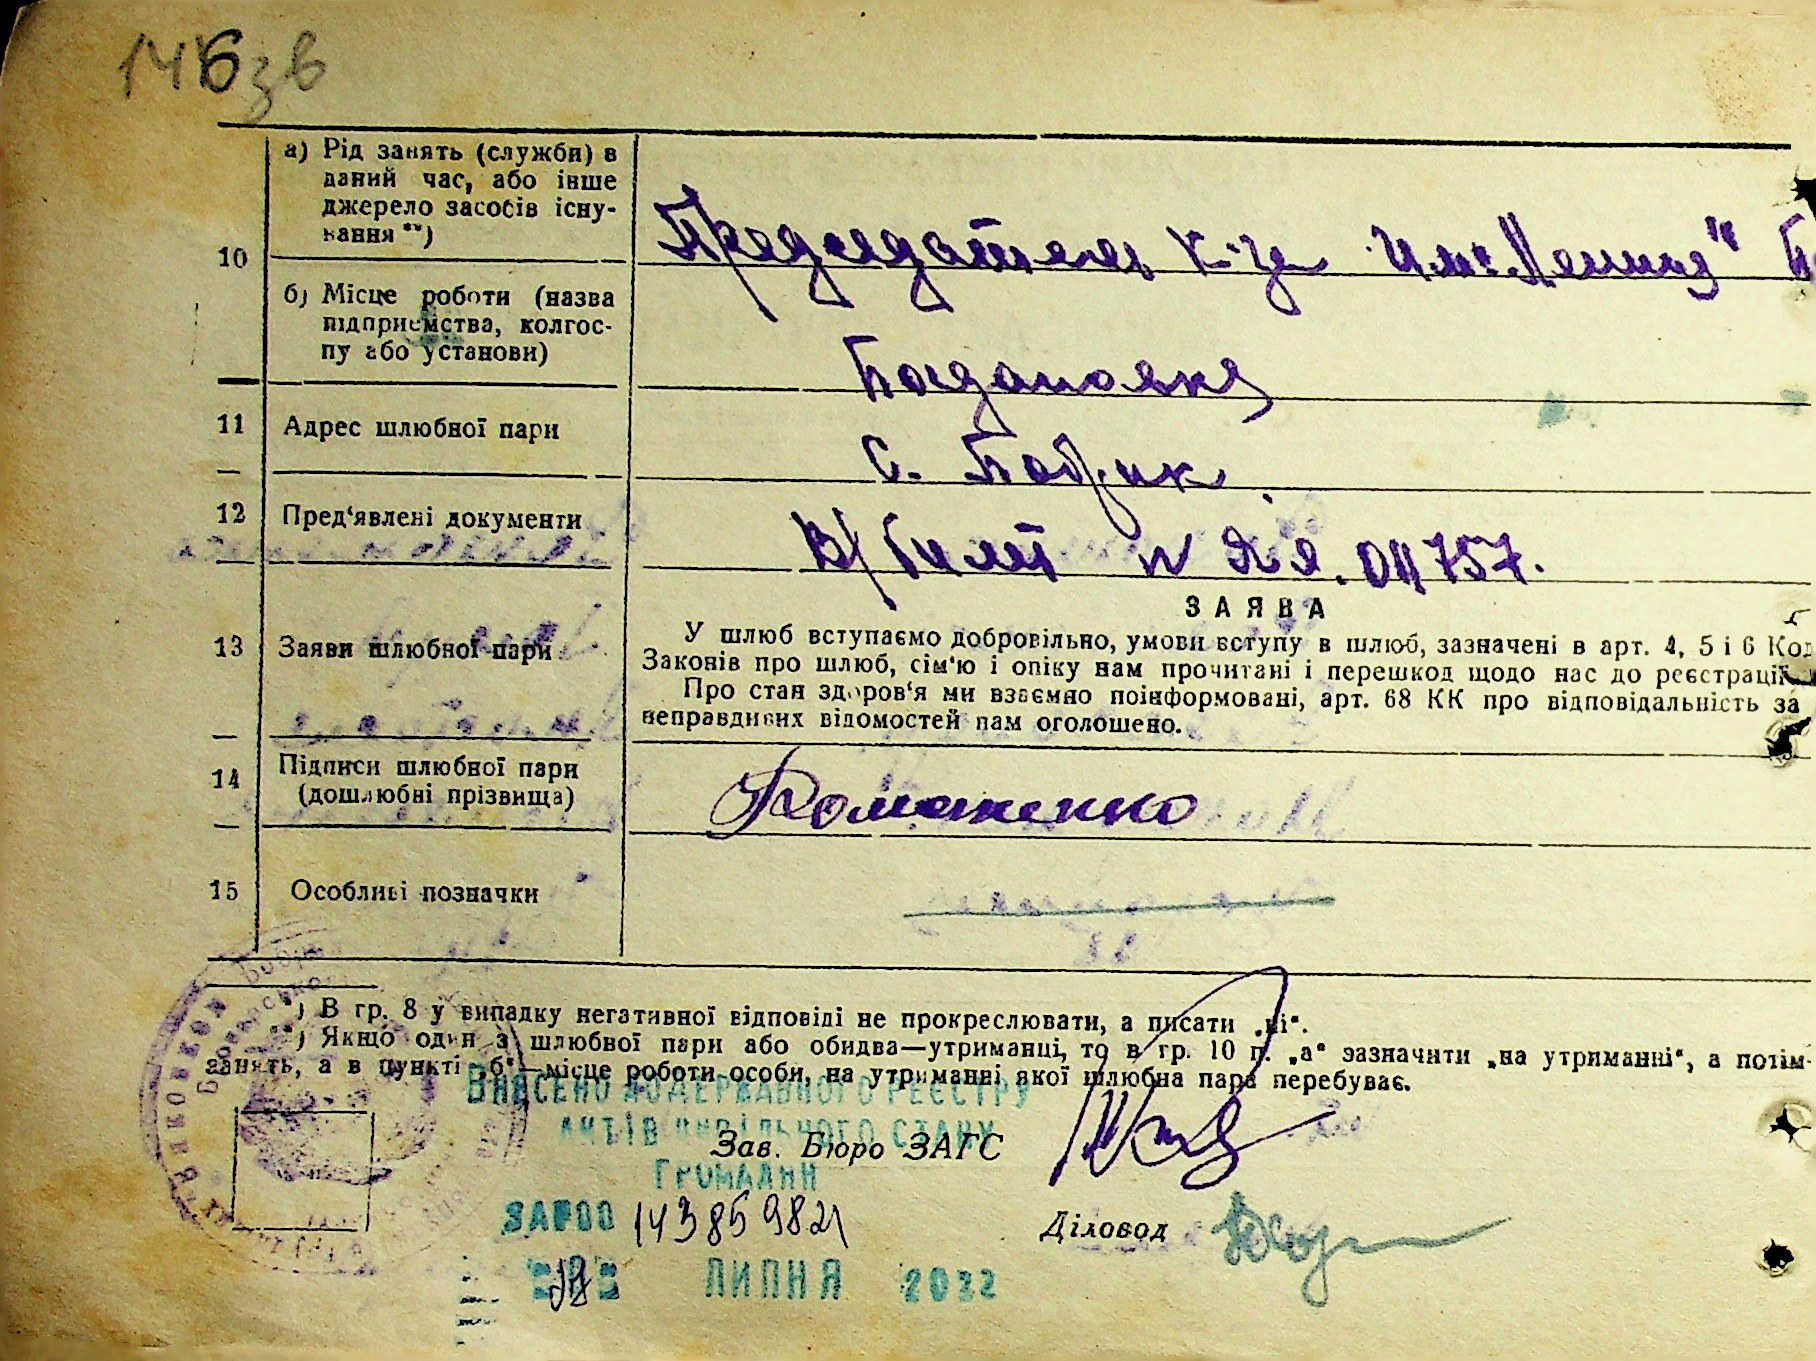 146зв
10
а) Рід занять (служби) в
даний час, або інше
джерело засобів існу-
вання **)
Председатель к-за им. Ленина"
б) Місце роботи (назва
підприємства, колгос-
пу або установи)
11
Адрес шлюбної пари
с. Бобрик
12
Пред‘явлені документи
В/билет N ЯЯ.
13
Заяви шлюбної пари
ЗАЯВА
У шлюб вступаємо добровільно, умови вступу в шлюб, зазначені в арт. 4, 5 і 6 Код
Законів про шлюб, сім‘ю і опіку нам прочитані і перешкод щодо нас до реєстрації
Про стан здоров‘я ми взаємно поінформовані, арт. 68 КК про відповідальність за
неправдивих відомостей нам оголошено.
14
Підписи шлюбної пари
(дошлюбні прізвища)
Романенко
15
Особливі позначки
*) В гр. 8 у випадку негативної відповіді не прокреслювати, а писати „ні“.
**) Якщо один з шлюбної пари або обидва—утриманці, то в гр. 10 п. „а“ зазначити „на утриманні“, а потім
занять, а в пункті „б“—місце роботи особи, на утриманні якої шлюбна пара перебуває.
ВНЕСЕНО ДО ДЕРЖАВНОГО РЕЄСТРУ
АКТІВ ЦИВІЛЬНОГО СТАНУ
ГРОМАДЯН
Зав. Бюро ЗАГС
Діловод
ЛИПНЯ 2022